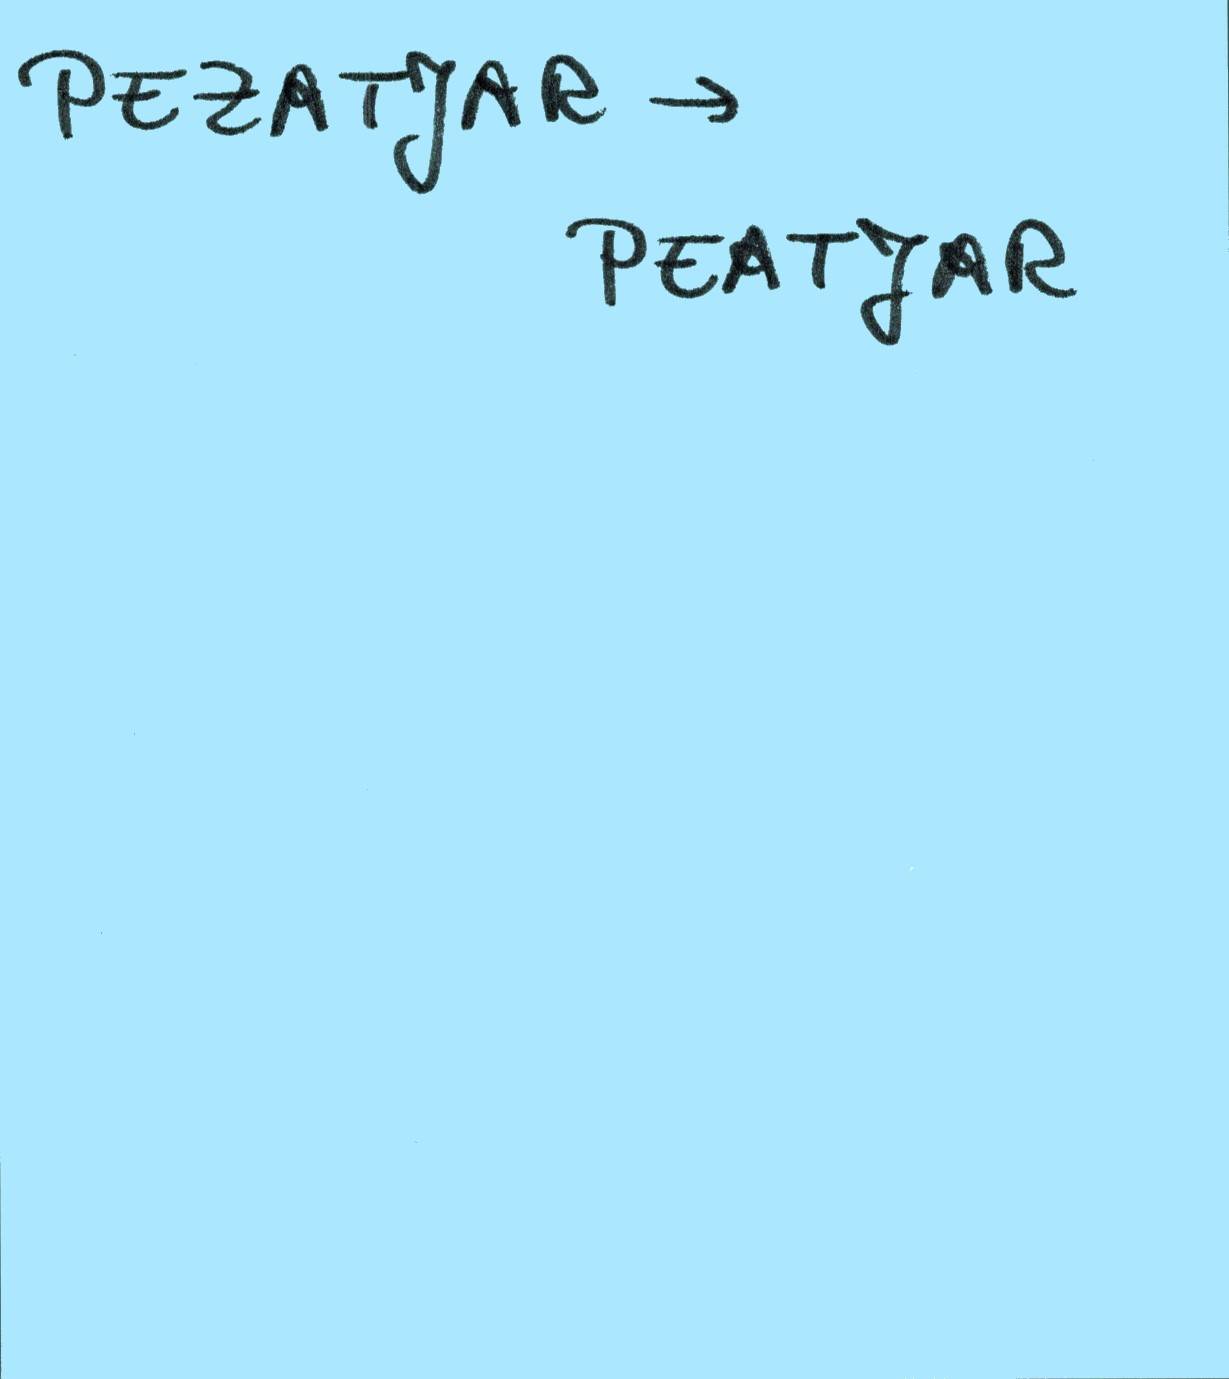 PEZATJAR →
PEATJAR